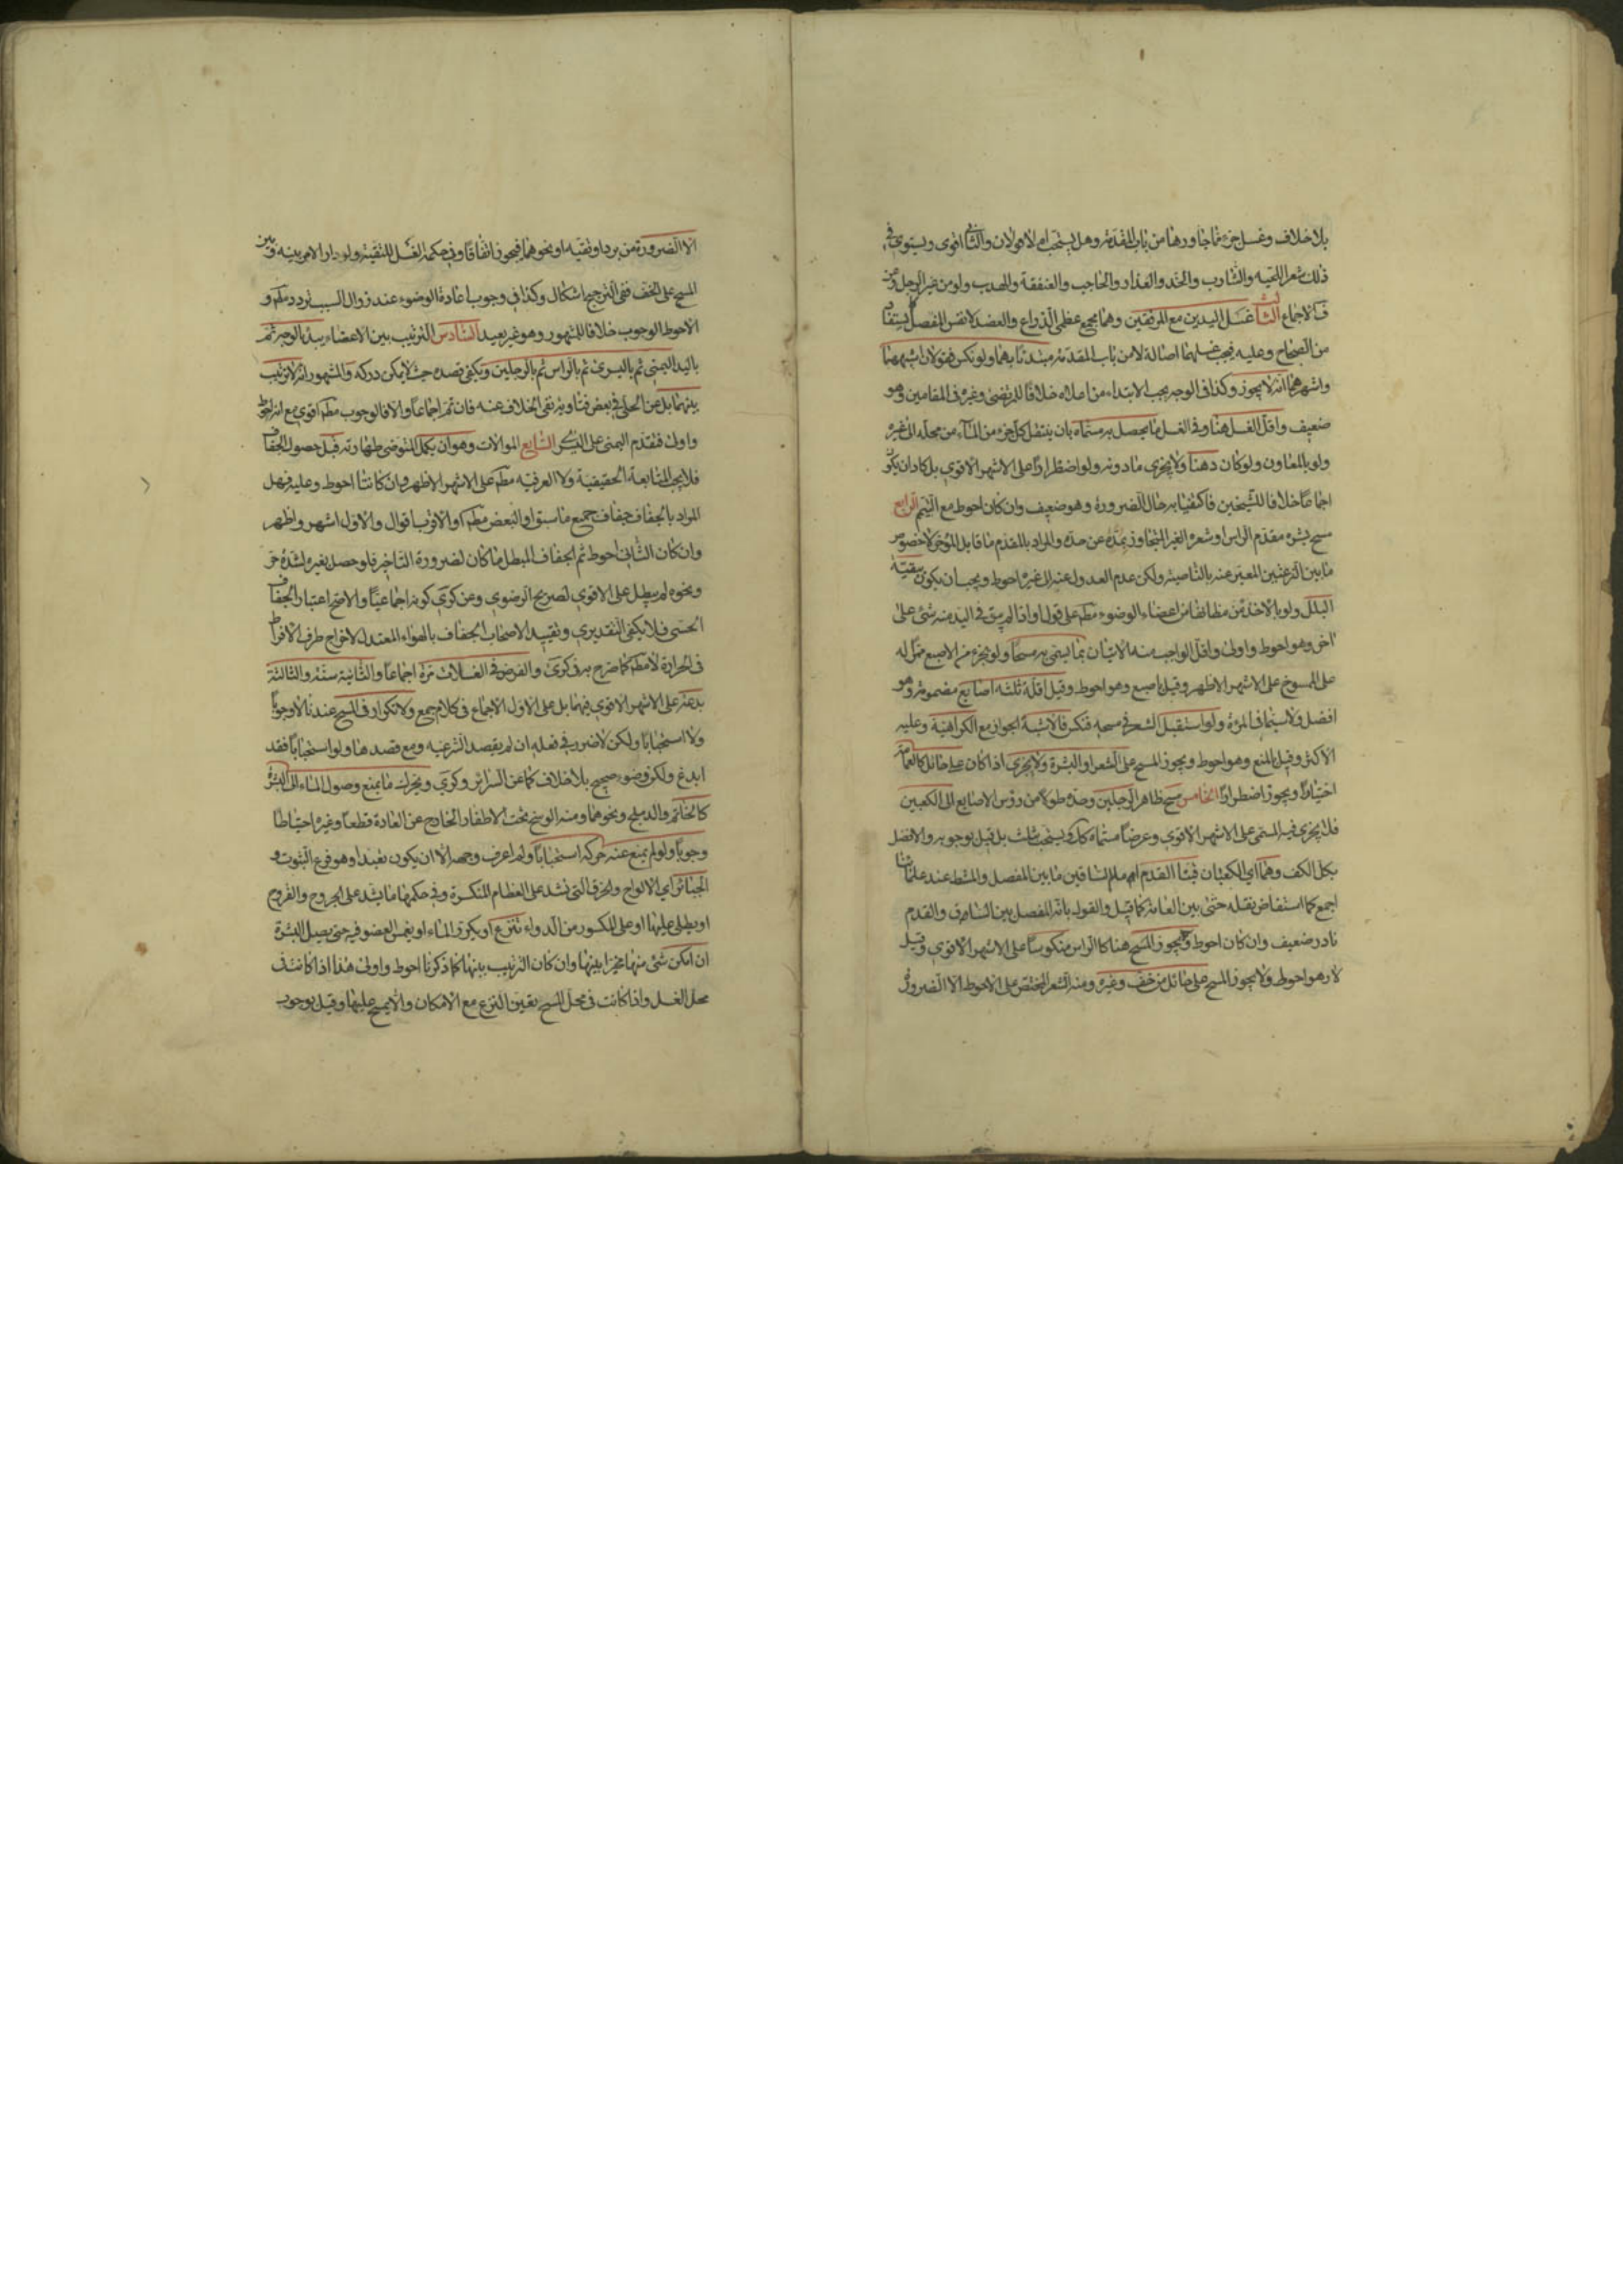 بلا خلاف وغسل جزء مما جاورها من باب المقدمة وهل يستحب ام لا قولان والثاني اقوى ويستوي في
ذلك شعر اللحية والشارب والخد والعذار والحاجب والعنفقة والهدب ولو من غير الرجل
فـ الاجماع الثالث غسل اليدين مع المرفقين وهما مجمع عظمي الذراع والعضد لا نفس المفصل
من الصحاح وعليه فيجب غسلهما اصالة لا من باب المقدمة مبتدئا بهما ولو نكس فقولان اشبههما
واشهرهما انه لا يجوز وكذا في الوجه يجب الابتداء من اعلاه خلافا للمرتضى وغيره في المقامين وهو
ضعيف واقل الغسل هنا وفي الغسل ما يحصل به مسماه بان ينتقل كل جزء من الماء من محله الى غيره
ولو بالمعاون ولو كان دهنا ولا يجزي ما دونه ولو اضطرارا على الاشهر الاقوى بل كاد ان يكون
اجماعا خلافا للشيخين فاكتفيا به حال الضرورة وهو ضعيف وان كان احوط مع التيمم الرابع
مسح بشرة مقدم الراس او شعره الغير المتجاوز بمده عن حده والمراد بالمقدم ما قابل المؤخر لا خصوص
ما بين النزعتين المعبر عنه بالناصية ولكن عدم العدول عنه الى غيره احوط ويجب ان يكون ببقية
البلل ولو بالاخذ من مظانها من اعضاء الوضوء مطم على قول او اذا لم يبق في اليد منه شئ على
اخر وهو احوط واولى واقل الواجب منه الاتيان بما يسمى به مسحا ولو بجزء من الاصبع ممرا له
على الممسوح على الاشهر الاظهر وقيل باصبع وهو احوط وقيل اقله ثلثه اصابع مضمومة وهو
افضل ولا سيما في المرءة ولو استقبل الشعر في مسحه فنكس فالاشبه الجواز مع الكراهية وعليه
الاكثر وقيل بالمنع وهو احوط ويجوز المسح على الشعر او البشرة ولا يجزي اذا كان على حائل كالعمامة
اختيارا ويجوز اضطرارا الخامس مسح ظاهر الرجلين وحده طولا من رؤس الاصابع الى الكعبين
فلا يجزي فيه المسمى على الاشهر الاقوى وعرضا مسماه كك ويستحب بثلث بل قيل بوجوبه والافضل
بكل الكف وهما اي الكعبان قبتا القدم امام الساقين ما بين المفصل والمشط عند علمائنا
اجمع كما استفاض نقله حتى بين العامة كما قيل والقول بانه المفصل بين الساق والقدم
نادر ضعيف وان كان احوط ويجوز المسح هنا كالراس منكوسا على الاشهر الاقوى وقيل
لا وهو احوط ولا يجوز المسح على حائل من خف وغيره ومنه الشعر المختص على الاحوط الا الضرورة
الا الضرورة من برد او تقية او نحوهما فيجوز اتفاقا وفي حكمه الغسل للتقية ولو دار الامر بينه وبين
المسح على الخف ففي الترجيح اشكال وكذا في وجوب اعادة الوضوء عند زوال السبب تردد مطم و
الاحوط الوجوب خلافا للمشهور وهو غير بعيد السادس الترتيب بين الاعضاء يبدء بالوجه ثم
باليد اليمنى ثم باليسرى ثم بالراس ثم بالرجلين ويكفي قصده حيث لا يمكن دركه والمشهور انه لا ترتيب
بينهما بل عن الحلي في بعض فتاويه نفي الخلاف عنه فان تم اجماعا والا فالوجوب مطم اقوى مع انه احوط
واولى فتقدم اليمنى على اليسرى السابع الموالات وهو ان يكمل المتوضي طهارته قبل حصول الجفاف
فلا يجب المتابعة الحقيقية ولا العرفية مطم على الاشهر الاظهر وان كانتا احوط وعليه فهل
المراد بالجفاف جفاف جميع ما سبق او البعض مطم او الاقرب اقوال والاول اشهر واظهر
وان كان الثاني احوط ثم الجفاف المبطل ما كان لضرورة التاخير فلو حصل بغيره لشدة حر
ونحوه لم يبطل على الاقوى لصريح الرضوي وعن كرى كونه اجماعيا والاصح اعتبار الجفاف
الحسي فلا يكفي التقديري وتقييد الاصحاب الجفاف بالهواء المعتدل لاخراج طرف الافراط
في الحرارة لا مطم كما صرح به في كرى والفرض في الغسلات مرة اجماعا والثانية سنة والثالثة
بدعة على الاشهر الاقوى فيهما بل على الاول الاجماع في كلام جمع ولا تكرار في المسح عندنا لا وجوبا
ولا استحبابا ولكن لا ضرر في فعله ان لم يقصد الشرعية ومع قصدها ولو استحبابا فقد
ابدع ولكن وضوءه صحيح بلا خلاف كما عن السرائر وكرى ويحرك ما يمنع وصول الماء الى البشرة
كالخاتم والدملج ونحوها ومنه الوسخ تحت الاظفار الخارج عن العادة قطعا وغيره احتياطا
وجوبا ولو لم يمنع عنه حركه استحبابا ولم اعرف وجهه الا ان يكون تعبدا وهو فرع الثبوت و
الجبائر اي الالواح والخرق التي تشد على العظام المنكسرة وفي حكمها ما يشد على الجروح والقروح
او يطلى عليها او على الكسور من الدواء تنزع او يكرر الماء او يغمس العضو فيه حتى يصل البشرة
ان امكن شئ منها مخيرا بينها وان كان الترتيب بينها كما ذكرنا احوط واولى هذا اذا كانت في
محل الغسل واذا كانت في محل المسح يتعين النزع مع الامكان والا يمسح عليها وقيل بوجوب